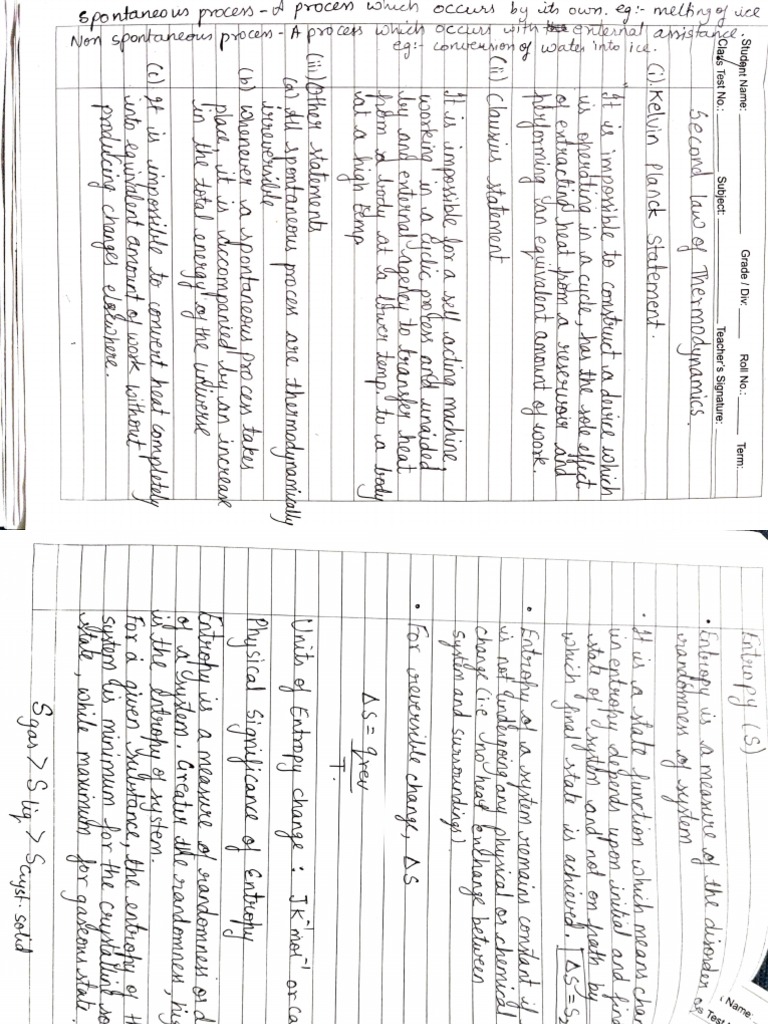 spontaneous process - A process which occurs by its own. eg:- melting of ice
Non spontaneous process - A process which occurs with external assistance.
eg:- conversion of water into ice.
Student Name: Grade / Div: Roll No.: Term:
Class Test No.: Subject: Teacher's Signature:
Second law of Thermodynamics.
(i) Kelvin Planck Statement.
"It is impossible to construct a device which
is operating in a cycle, has the sole effect
of extracting heat from a reservoir and
performing an equivalent amount of work.
(ii) Clausius statement
It is impossible for a self acting machine,
working in a cyclic process and unaided
by and external agency to transfer heat
from a body at a lower temp. to a body
at a high temp
(iii) Other statements
(a) All spontaneous process are thermodynamically
irreversible
(b) whenever a spontaneous process takes
place, it is accompanied by an increase
in the total energy of the universe
(c) It is impossible to convert heat completely
into equivalent amount of work without
producing changes elsewhere.
Name:
Test
Entropy (S)
• Entropy is a measure of the disorder or
randomness of system
• It is a state function which means chan
in entropy depends upon initial and fin
state of system and not on path by
which final state is achieved. ΔS = S
• Entropy of a system remains constant if
is not undergoing any physical or chemical
change (i.e no heat exchange between
system and surroundings)
• For reversible change, ΔS
ΔS = qrev
T.
Units of Entropy change : JK⁻¹mol⁻¹ or ca
Physical Significance of Entropy
Entropy is a measure of randomness or d
of a system. Greater the randomness, hig
is the entropy of system.
For a given substance, the entropy of th
system is minimum for the crystalline so
state, while maximum for gaseous state.
Sgas > Sliq > Scryst. solid